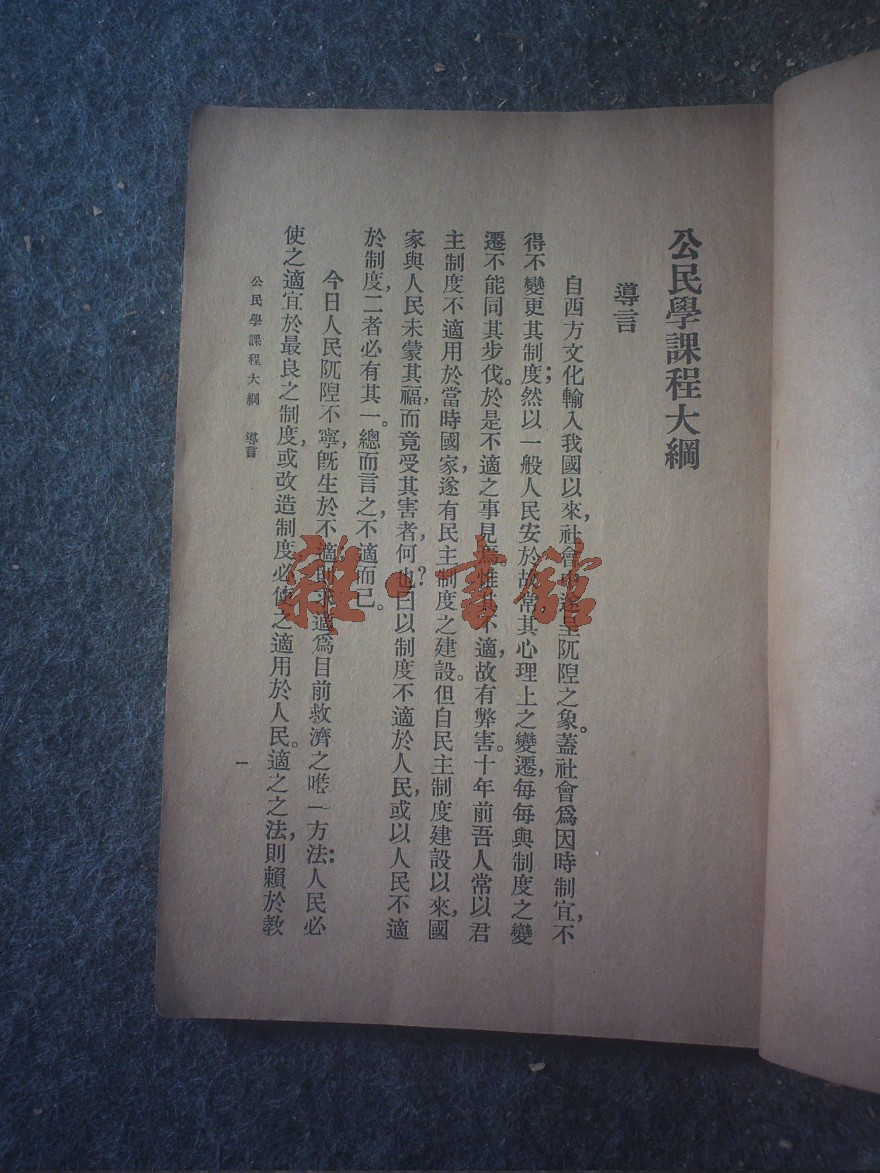 公民學課程大綱
導言
自西方文化輸入我國以來，社會中遂呈阢隉之象。蓋社會爲因時制宜，不
得不變更其制度；然以一般人民安於故常其心理上之變遷，每每與制度之變
遷不能同其步伐。於是不適之事見焉。惟其不適，故有弊害。十年前吾人常以君
主制度不適用於當時國家，遂有民主制度之建設。但自民主制度建設以來，國
家與人民未蒙其福，而竟受其害者，何也？曰以制度不適於人民，或以人民不適
於制度，二者必有其一。總而言之，不適而已。
今日人民阢隉不寧，旣生於不適，則求適爲目前救濟之唯一方法：人民必
使之適宜於最良之制度，或改造制度必使之適用於人民。適之之法，則賴於教
公民學課程大綱　導言
一
雜·書館